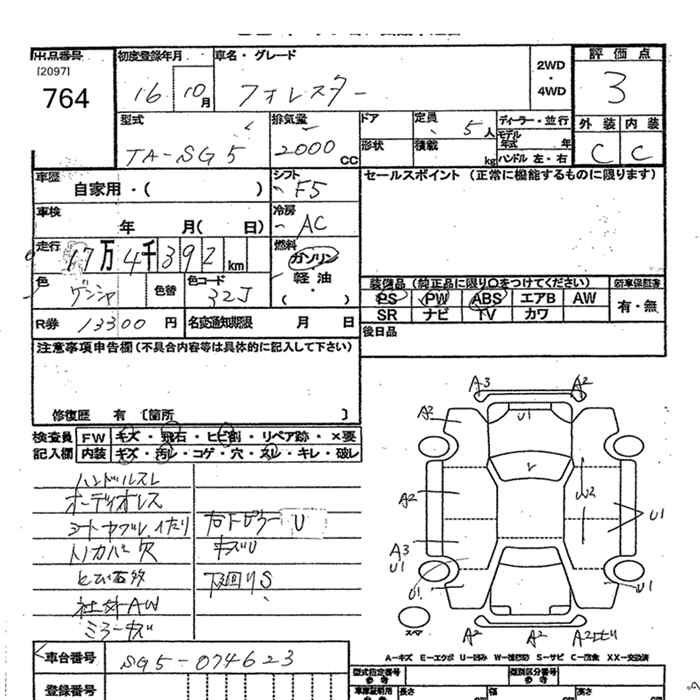 出品番号
[2097]
764
初度登録年月
16 10月
車名・グレード
フォレスター
2WD
・
4WD
評価点
3
外装 内装
C C
型式
TA-SG5
排気量
2000 CC
ドア
形状
定員
5人
積載
kg
ディーラー・並行
モデル年式 年
ハンドル 左・右
車歴
自家用・( )
シフト
F5
セールスポイント (正常に機能するものに限ります)
車検
年 月( 日)
冷房
AC
走行
17万4千392km
燃料
ガソリン
軽油
( ・ )
色
ゲンシャ
色替
色コード
32J
装備品 (純正品に限り○をつけてください)
PS PW ABS エアB AW
SR ナビ TV カワ
新車保証書
有・無
R券 13300円
名変通知期限 月 日
後日品
注意事項申告欄 (不具合内容等は具体的に記入して下さい)
修復歴 有 [箇所 ]
検査員
記入欄
FW キズ・飛石・ヒビ割・リペア跡・×要
内装 キズ・汚レ・コゲ・穴・スレ・キレ・破レ
ハンドルスレ
オーディオレス
シートヤブレ、イタミ
右下ピラー U
キズU
下回りS
社外AW
ミラーキズ
A3 A2
A2 U1
A2
W2
U1
A3
U1
U1
U1
スペア
A2 A2 A2
A-キズ E-エクボ U-凹み W-補修跡 S-サビ C-腐食 XX-交換済
車台番号
SG5-074623
登録番号
型式指定番号
参考
類別区分番号
参考
長さ 幅 高さ